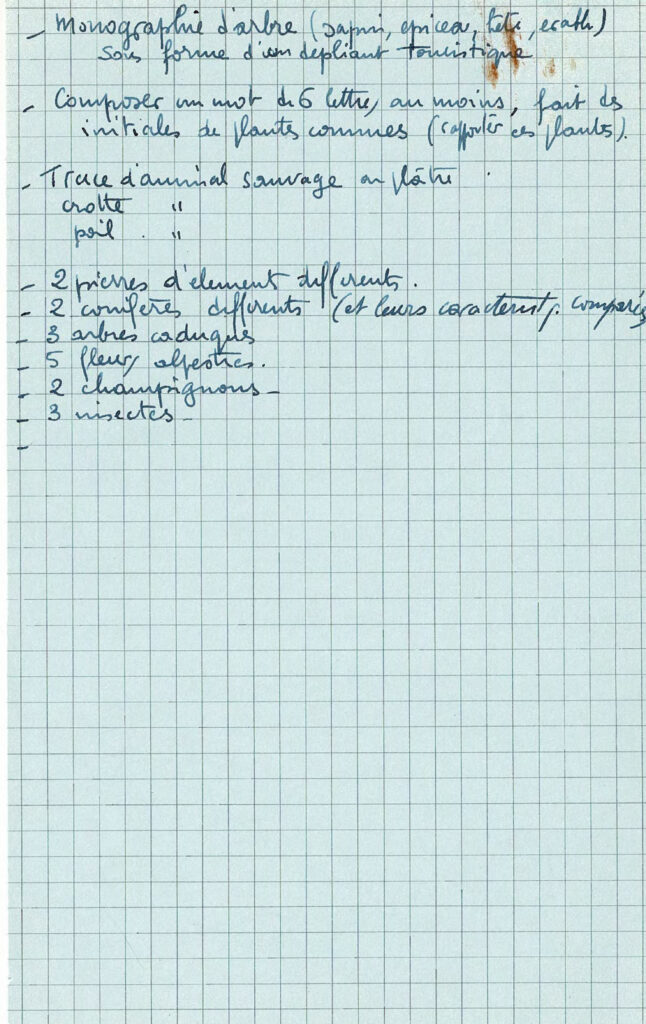 - Monographie d'arbre (sapin, epicea, hêtre, erable)
Sous forme d'un depliant touristique
- Composer un mot de 6 lettres au moins, fait des
initiales de plantes connues (rapporter ces plantes).
- Trace d'animal sauvage en plâtre
crotte "
poil "
- 2 pierres d'element differents.
- 2 conifères differents (et leurs caracterist. comparés
- 3 arbres caduques
- 5 fleurs alpestres.
- 2 champignons -
- 3 insectes -
-